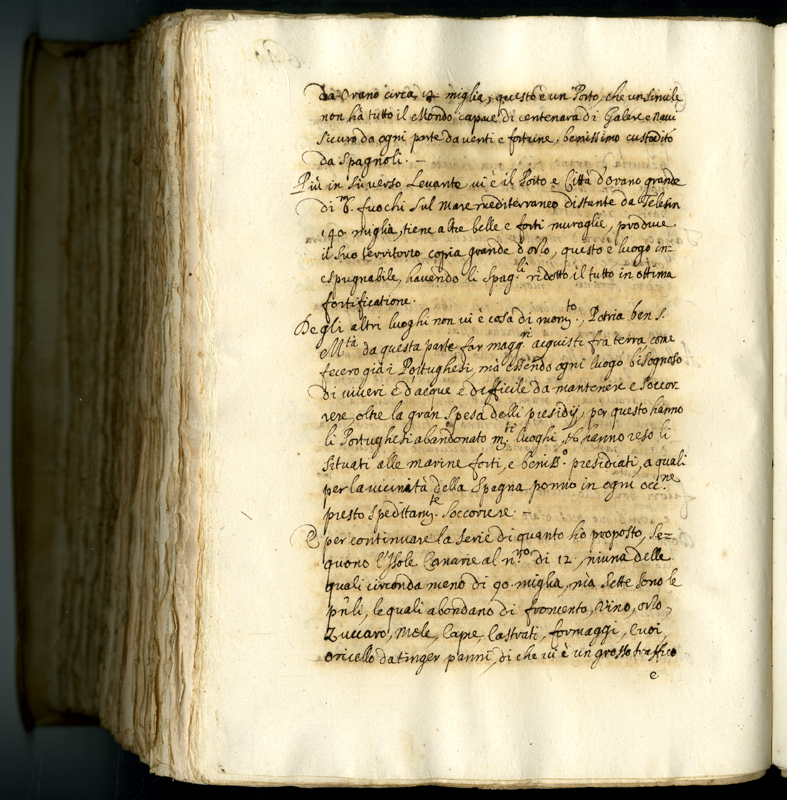 da Orano circa 12 miglia, questo è un Porto, che un simile
non hà tutto il Mondo capace di centenara di Galere e Navi
sicuro da ogni parte da venti e fortune, benissimo custodito
da Spagnoli. —
Più in sù verso Levante vi è il Porto e Città d'orano grande
di fuochi sul Mare mediterraneo distante da Telesin
190. miglia, tiene altre belle e forti muraglie, produce
il suo territorio copia grande d'orso, questo è luogo in-
espugnabile, havendo li Spag.li ridotto il tutto in ottima
fortificatione.
Degli altri luoghi non vi è cosa di mom.to, Potria ben S.
M.tà da questa parte far magg.ri acquisti fra terra come
fecero già i Portughesi, mà essendo ogni luogo bisognoso
di viveri e d'acque e difficile da mantenere e soccor
rere, oltre la gran spesa delli presidij, per questo hanno
li Portughesi abandonato m.ti luoghi, et hanno reso li
situati alle marine forti, e beniss.o presidiati, a quali
per la vicinità della Spagna ponno in ogni occ.ne
presto speditam.te soccorrere. —
E per continuare la serie di quanto hò proposto, se=
guono l'Isole Canarie al n.ro di 12. niuna delle
quali circonda meno di 90. miglia, mà sette sono le
p̃nli, le quali abondano di fromento, Vino, orso,
Zuccaro, Mele, Capre, Castrati, formaggi, Cuoi,
oricello da tinger panni, di che vi è un grosso traffico
e